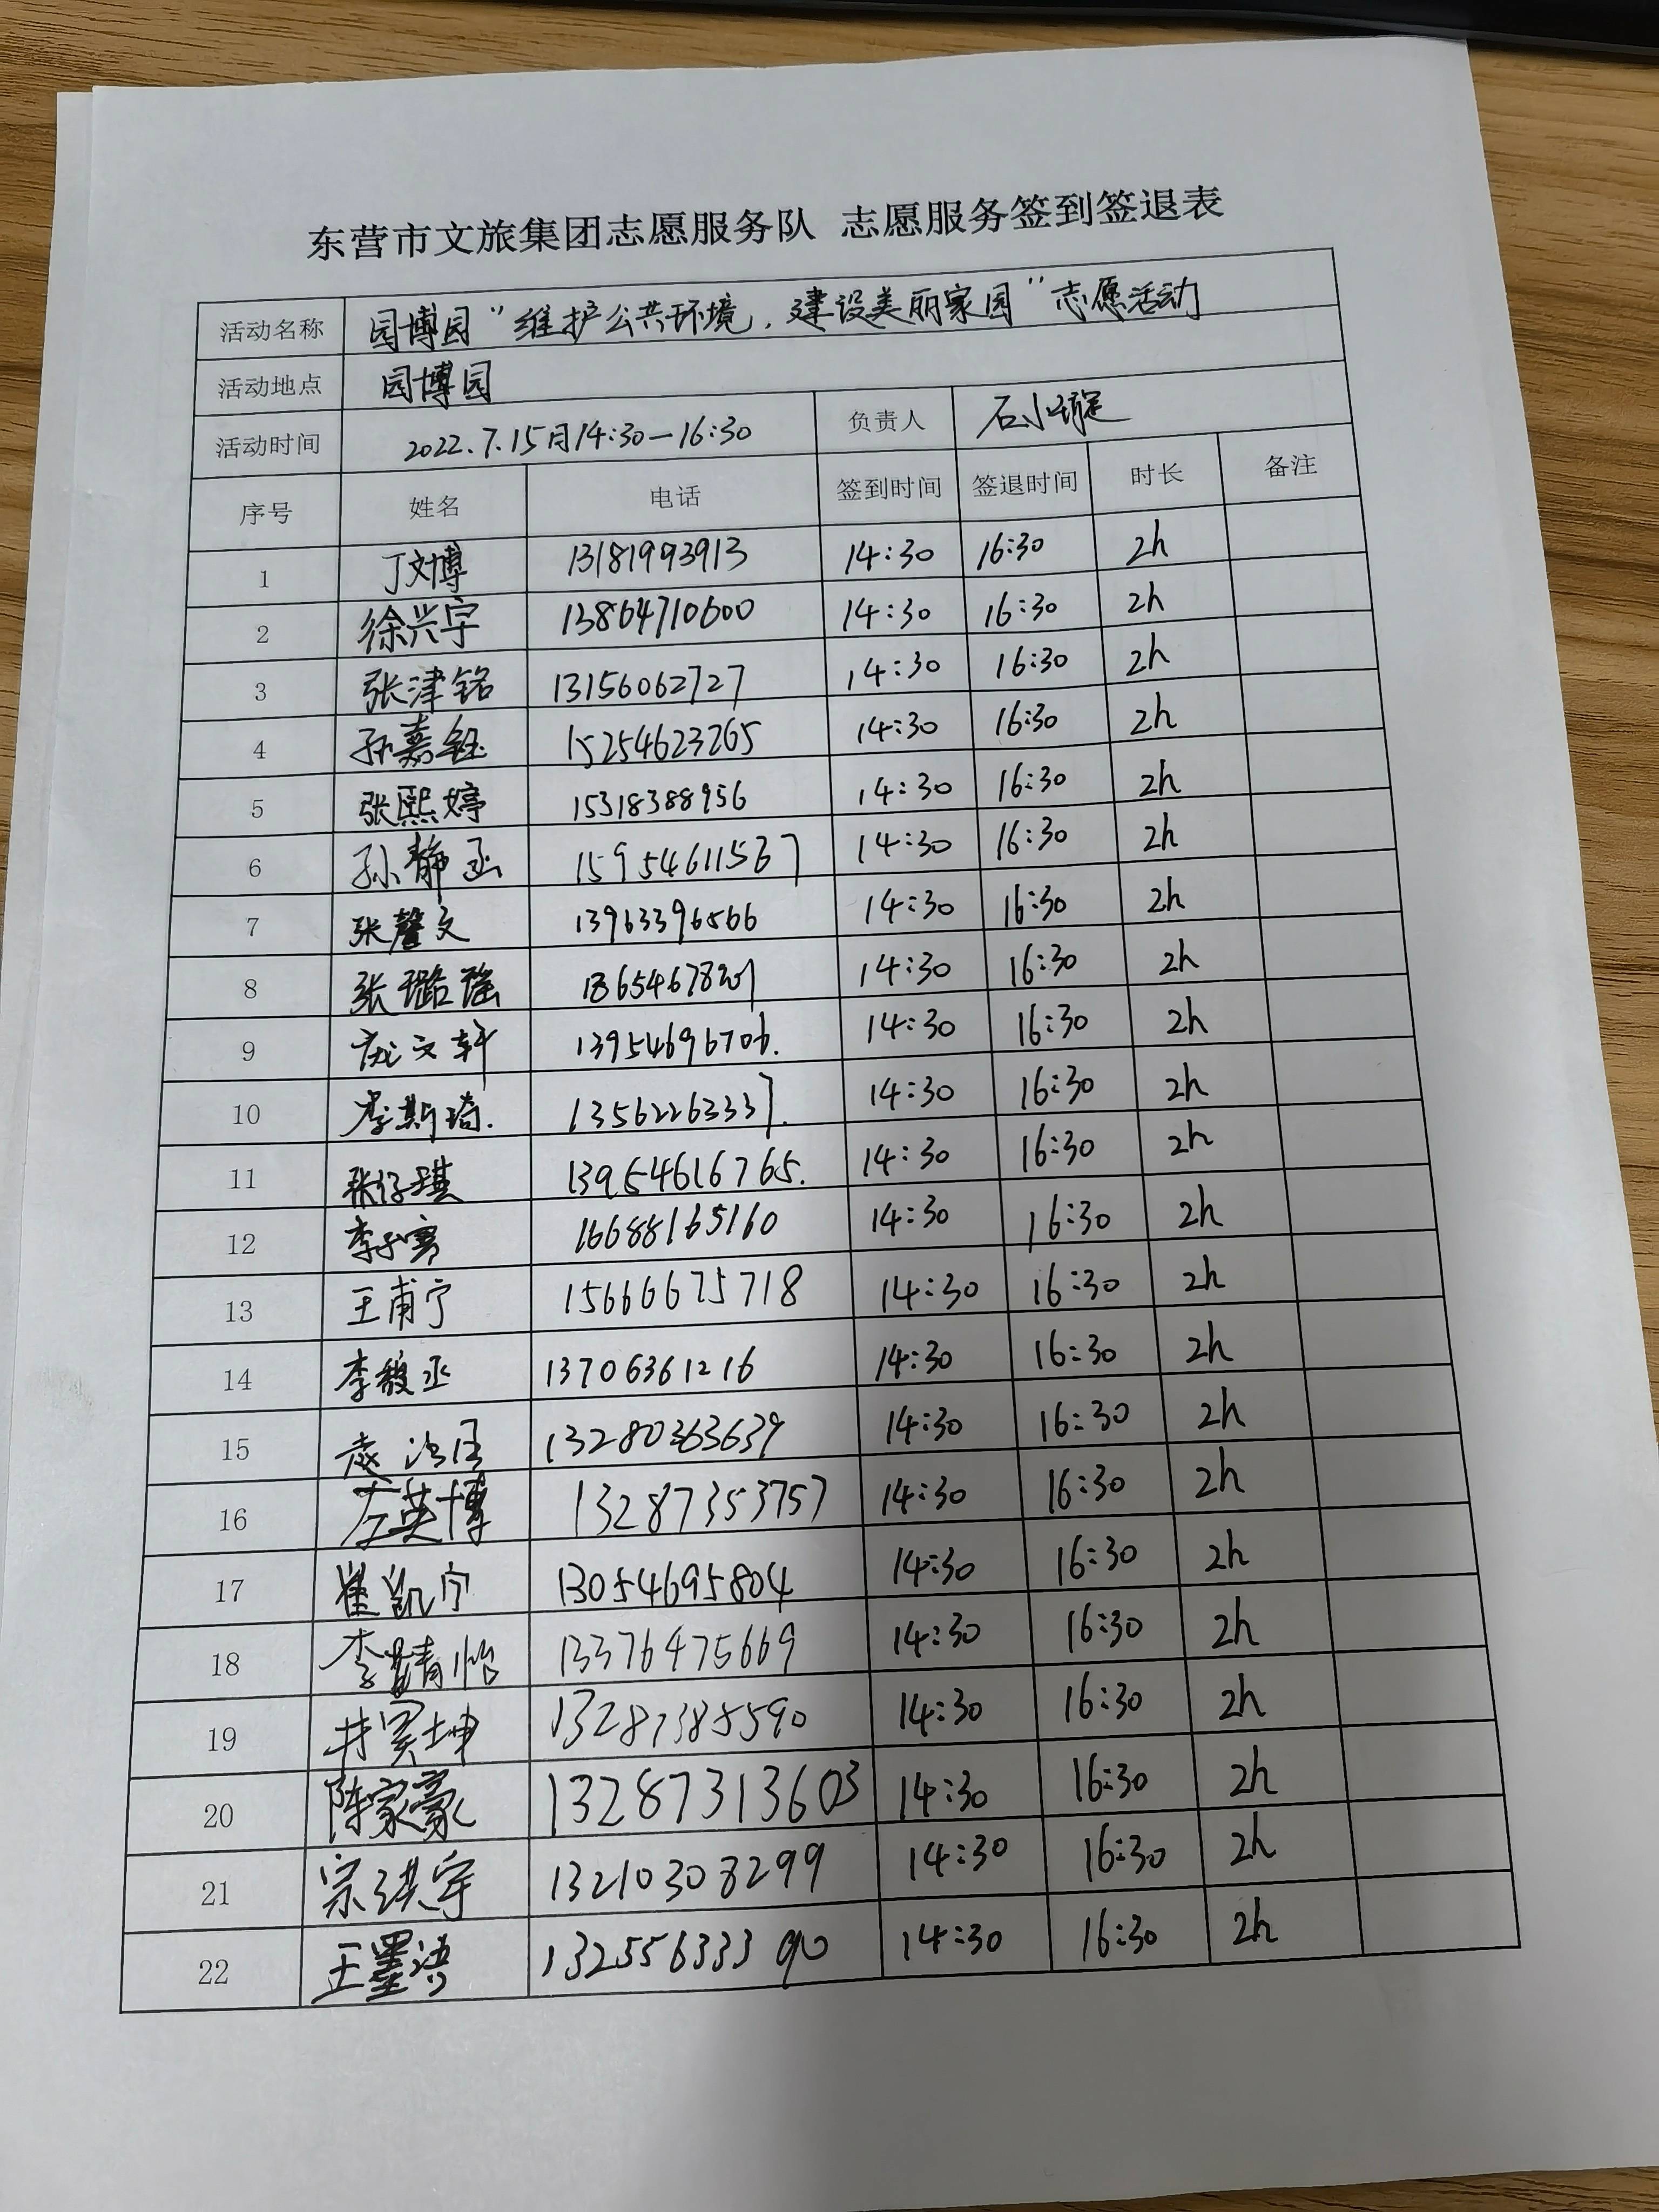 东营市文旅集团志愿服务队 志愿服务签到签退表
活动名称 园博园“维护公共环境，建设美丽家园”志愿活动
活动地点 园博园
活动时间 2022.7.15月14:30—16:30 负责人 石小璇
序号 姓名 电话 签到时间 签退时间 时长 备注
1 丁文博 13181993913 14:30 16:30 2h
2 徐兴宇 13864710600 14:30 16:30 2h
3 张津铭 13156062727 14:30 16:30 2h
4 孙嘉钰 15254623265 14:30 16:30 2h
5 张熙婷 15318388956 14:30 16:30 2h
6 孙静函 15954611567 14:30 16:30 2h
7 张馨文 13963396566 14:30 16:30 2h
8 张璐瑶 14:30 16:30 2h
9 庞文轩 13954696706. 14:30 16:30 2h
10 李斯琦. 13562263337. 14:30 16:30 2h
11 张仔琪 13954616765. 14:30 16:30 2h
12 16688165160 14:30 16:30 2h
13 王甫宁 15666675718 14:30 16:30 2h
14 李馥丞 13706361216 14:30 16:30 2h
15 13280363639 14:30 16:30 2h
16 左英博 13287353757 14:30 16:30 2h
17 崔凯宁 13054695804 14:30 16:30 2h
18 李婧怡 13376475669 14:30 16:30 2h
19 井昊坤 13287385590 14:30 16:30 2h
20 陈家豪 13287313603 14:30 16:30 2h
21 宗琪宇 13210308299 14:30 16:30 2h
22 王墨涵 13255633390 14:30 16:30 2h